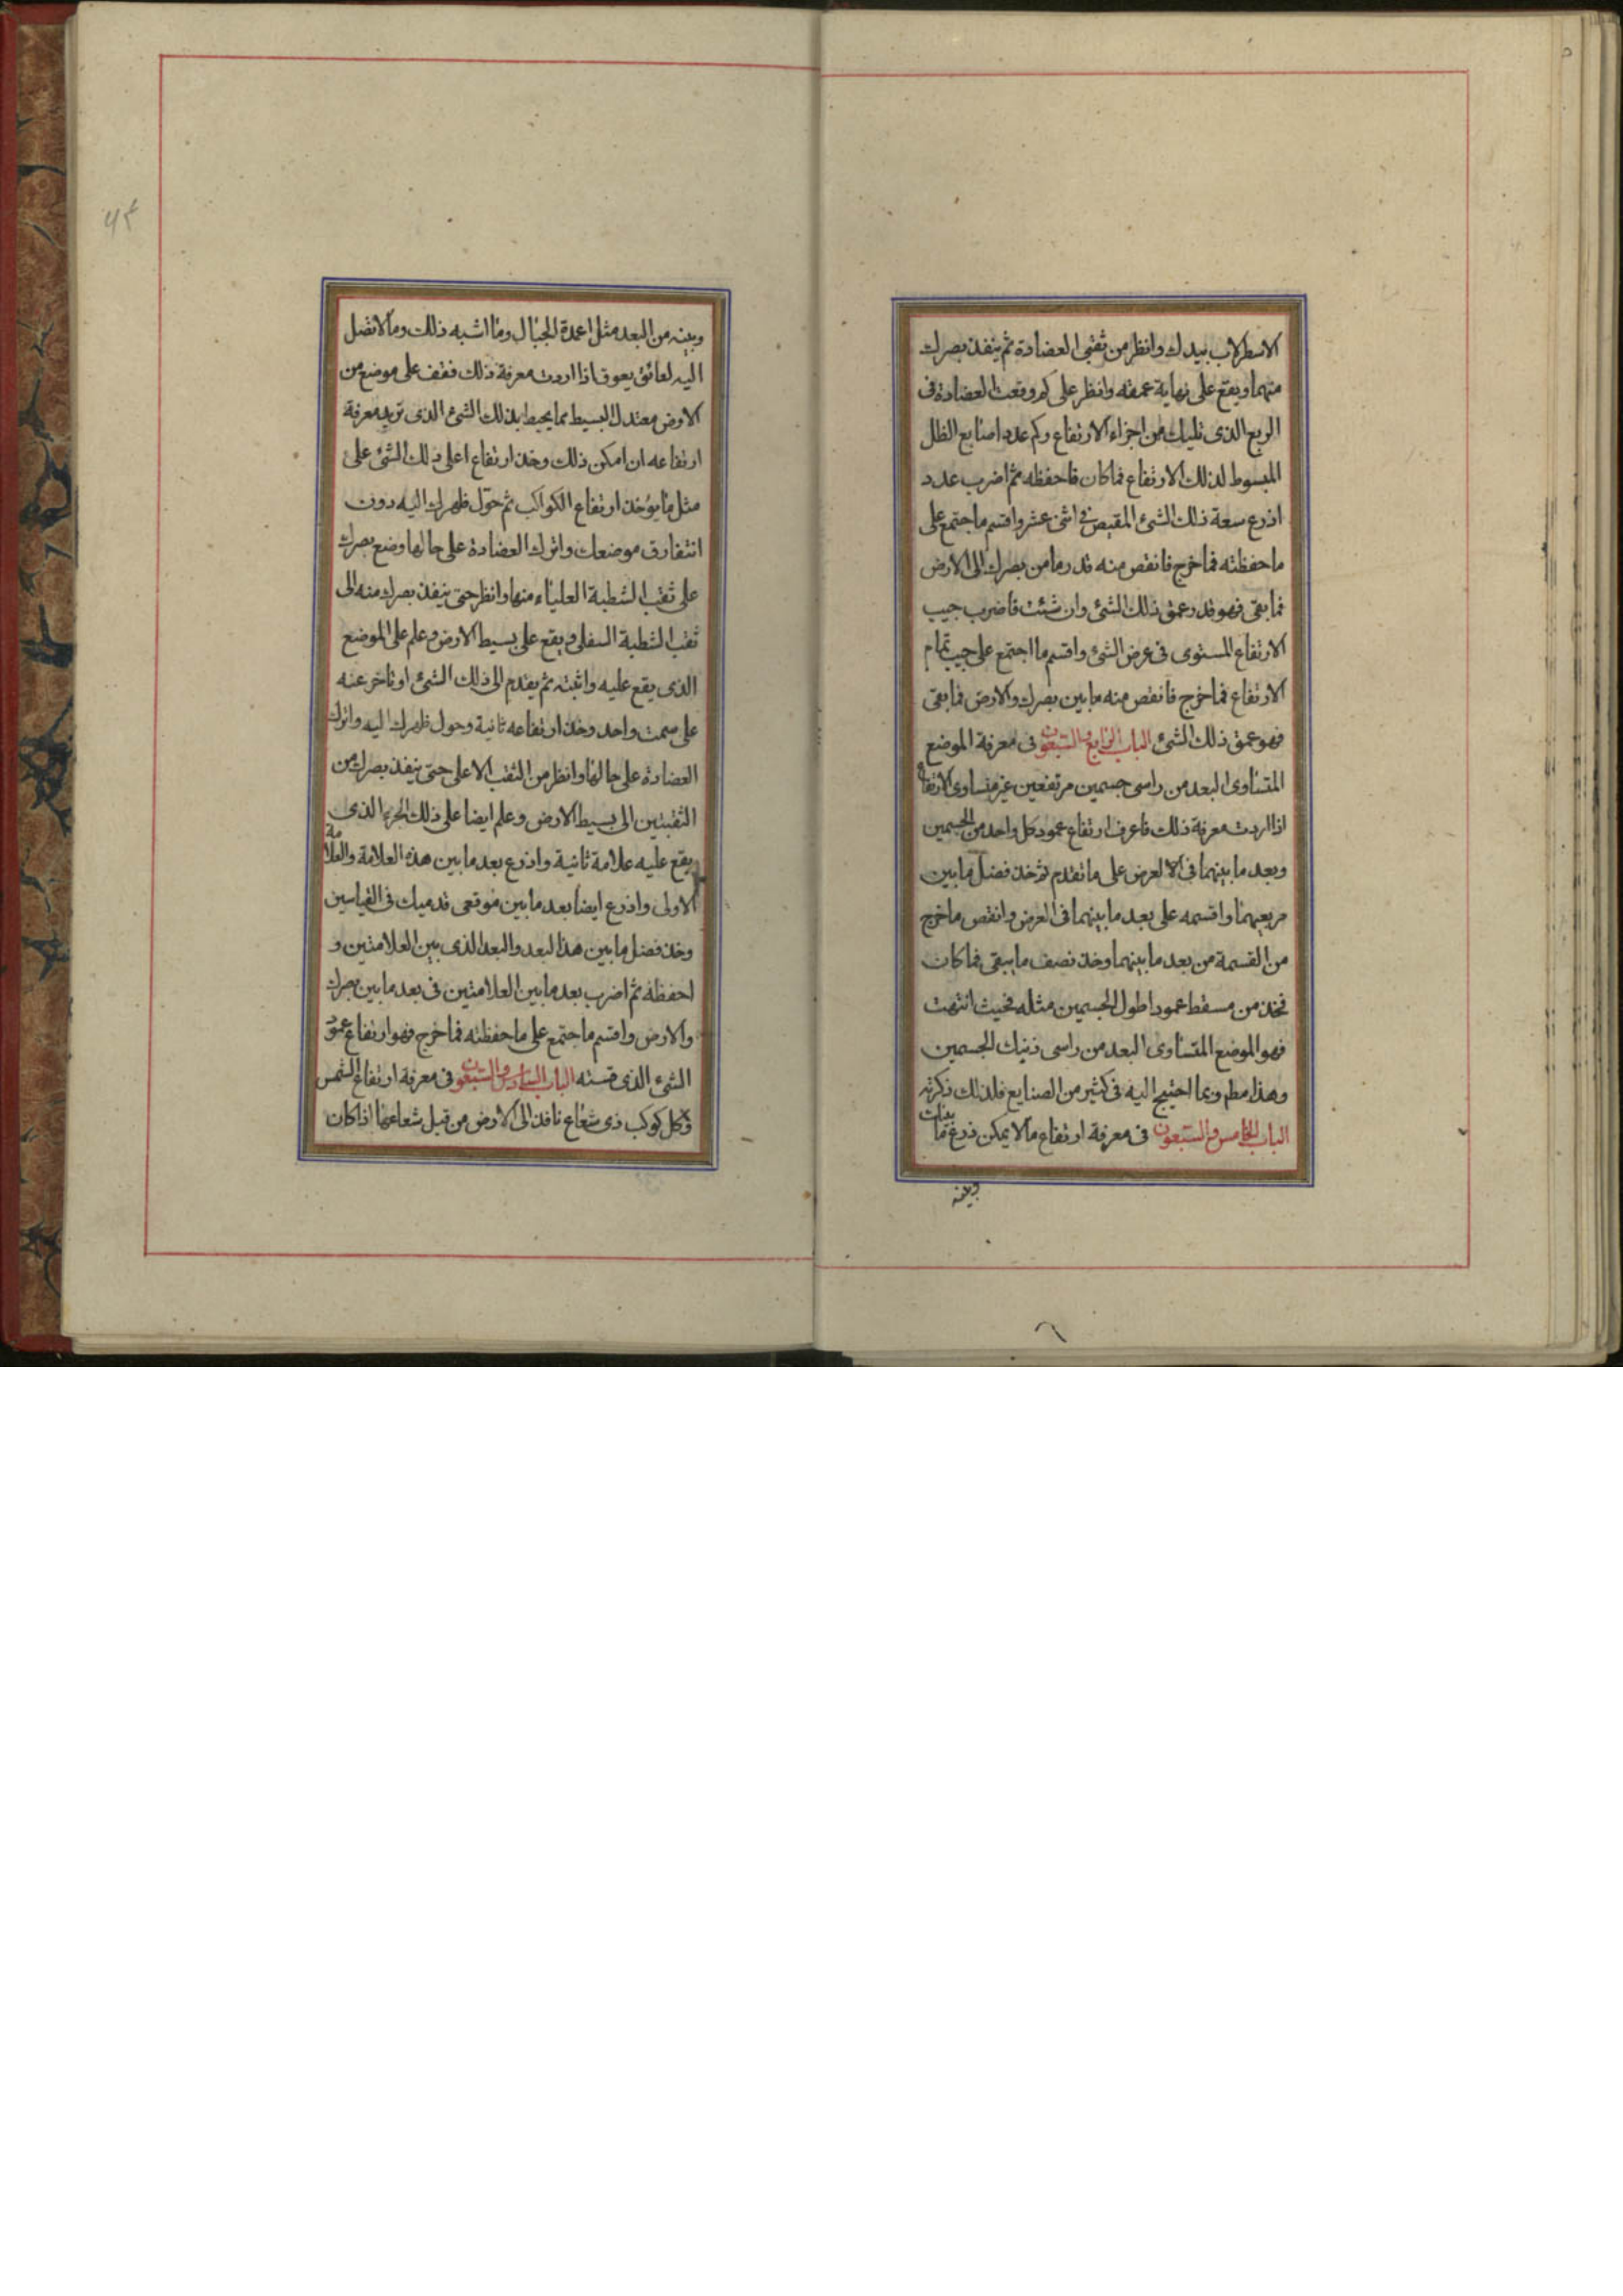 الاسطرلاب بيدك وانظر من ثقبتى العضادة ثم ينفذ بصرك
منهما ويقع على نهاية عمقه وانظر على كم وقعت العضادة فى
الربع الذى تليك من اجزاء الارتفاع وكم عدد اصابع الظل
المبسوط لذلك الارتفاع فما كان فاحفظه ثم اضرب عدد
اذرع سعة ذلك الشئ المقيس فى اثنى عشر واقسم ما جتمع على
ما حفظته فما خرج فانقص منه قدر ما من بصرك الى الارض
فما بقى فهو قدر عمق ذلك الشئ وان شئت فاضرب جيب
الارتفاع المستوى فى عرض الشئ واقسم ما اجتمع على جيب تمام
الارتفاع فما خرج فانقص منه ما بين بصرك والارض فما بقى
فهو عمق ذلك الشئ الباب الرابع والسبعون فى معرفة الموضع
المتساوى البعد من راسى جسمين مرتفعين غير متساوى الارتفاع
اذا اردت معرفة ذلك فاعرف ارتفاع عمود كل واحد من الجسمين
وبعد ما بينهما فى الا لعرض على ما تقدم ثم خذ فضل ما بين
مربعيهما واقسمه على بعد ما بينهما فى العرض وانقص ما خرج
من القسمة من بعد ما بينهما وخذ نصف ما يبقى فما كان
فخذ من مسقط عمود اطول الجسمين مثله فحيث انتهت
فهو الموضع المتساوى البعد من راسى ذنيك الجسمين
وهذا مطم وبما احتيج اليه فى كثير من الصنايع فلذلك ذكرته
الباب الخامس والسبعون فى معرفة ارتفاع ما لا يمكن ذرع ما بينك
وبينه
وبينه من البعد مثل اعمدة الجبال وما اشبه ذلك وما لا تصل
اليه لعائق يعوق اذا اردت معرفة ذلك فقف على موضع من
الارض معتدل البسيط مما يحيط بذلك الشئ الذى تريد معرفة
ارتفاعه ان امكن ذلك وخذ ارتفاع اعلى ذلك الشئ على
مثل ما يؤخذ ارتفاع الكواكب ثم حول ظهرك اليه دون
ان تفارق موضعك واترك العضادة على حالها وضع بصرك
على ثقب الشطبة العلياء منها وانظر حتى ينفذ بصرك منه الى
ثقب الشطبة السفلى ويقع على بسيط الارض وعلم على الموضع
الذى يقع عليه واثبته ثم يقدم الى ذلك الشئ او تاخر عنه
على سمت واحد وخذ ارتفاعه ثانية وحول ظهرك اليه واترك
العضادة على حالها وانظر من الثقب الاعلى حتى ينفذ بصرك من
الثقبتين الى بسيط الارض وعلم ايضا على ذلك الجزء الذى
يقع عليه علامة ثانية واذرع بعد ما بين هذه العلامة والعلامة
الاولى واذرع ايضا بعد ما بين موقعى قدميك فى القياسين
وخذ فضل ما بين هذا البعد والبعد الذى بين العلامتين و
احفظه ثم اضرب بعد ما بين العلامتين فى بعد ما بين بصرك
والارض واقسم ما جتمع على ما حفظته فما خرج فهو ارتفاع عمق
الشئ الذى قسته الباب السادس والسبعون فى معرفة ارتفاع الشمس
وكل كوكب ذى شعاع نافذ الى الارض من قبل شعاعها اذا كان